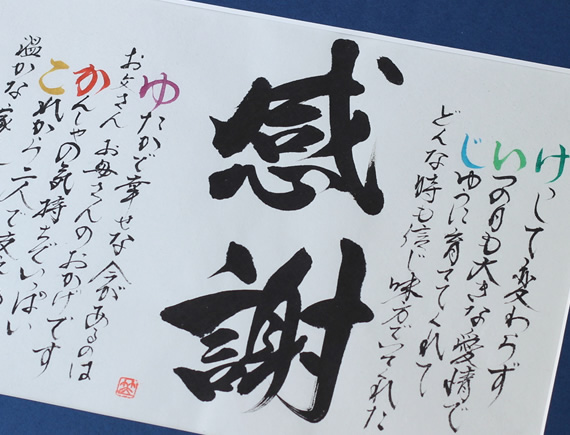 けして変わらず
いつの日も大きな愛情で
じゆうに育ててくれて
どんな時も信じ味方でいてくれた
感謝
ゆたかで幸せな今があるのは
お父さん お母さんのおかげです
かんしゃの気持ちでいっぱい
これから二人で支え
温かな家